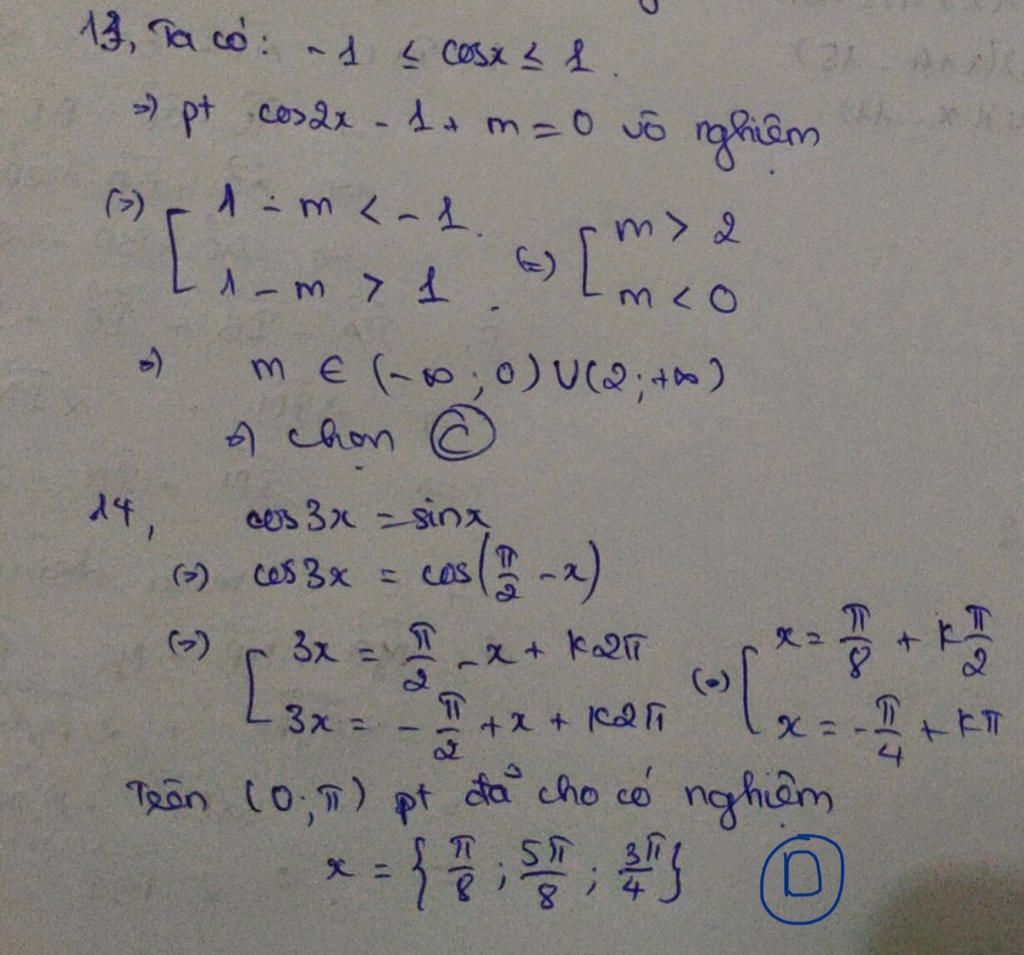 13, Ta có: -1 ≤ cosx ≤ 1.
=> pt cos2x - 1 + m = 0 vô nghiệm
<=> [ 1 - m < -1. <=> [ m > 2
1 - m > 1. m < 0
=> m ∈ (-∞; 0) ∪ (2; +∞)
=> chọn C
14, cos3x = sinx
<=> cos3x = cos(π/2 - x)
<=> [ 3x = π/2 - x + k2π <=> [ x = π/8 + kπ/2
3x = -π/2 + x + k2π x = -π/4 + kπ
Trên (0; π) pt đã cho có nghiệm
x = {π/8; 5π/8; 3π/4} D